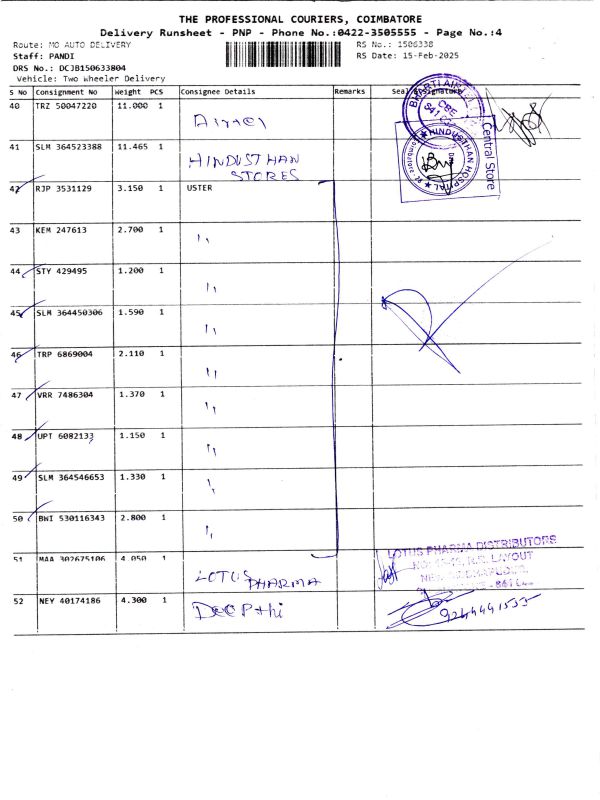 THE PROFESSIONAL COURIERS, COIMBATORE
Delivery Runsheet - PNP - Phone No.:0422-3505555 - Page No.:4
Route: MO AUTO DELIVERY RS No.: 1506338
Staff: PANDI RS Date: 15-Feb-2025
DRS No.: DCJB150633804
Vehicle: Two Wheeler Delivery
S No Consignment No Weight PCS Consignee Details Remarks Seal & Signature
40 TRZ 50047220 11.000 1 Airtel
BHARTI AIRTEL
CBE
41 SLM 364523388 11.465 1 HINDUSTHAN
STORES
HINDUSTHAN HOSPITAL
Central Store
42 RJP 3531129 3.150 1 USTER
43 KEM 247613 2.700 1 "
44 STY 429495 1.200 1 "
45 SLM 364450306 1.590 1 "
46 TRP 6869004 2.110 1 "
47 VRR 7486304 1.370 1 "
48 UPT 6082133 1.150 1 "
49 SLM 364546653 1.330 1 "
50 BWI 530116343 2.800 1 "
51 MAA 302675106 4.050 1 LOTUS PHARMA
LOTUS PHARMA DISTRIBUTORS
LAYOUT
52 NEY 40174186 4.300 1 Deepthi
9244441555